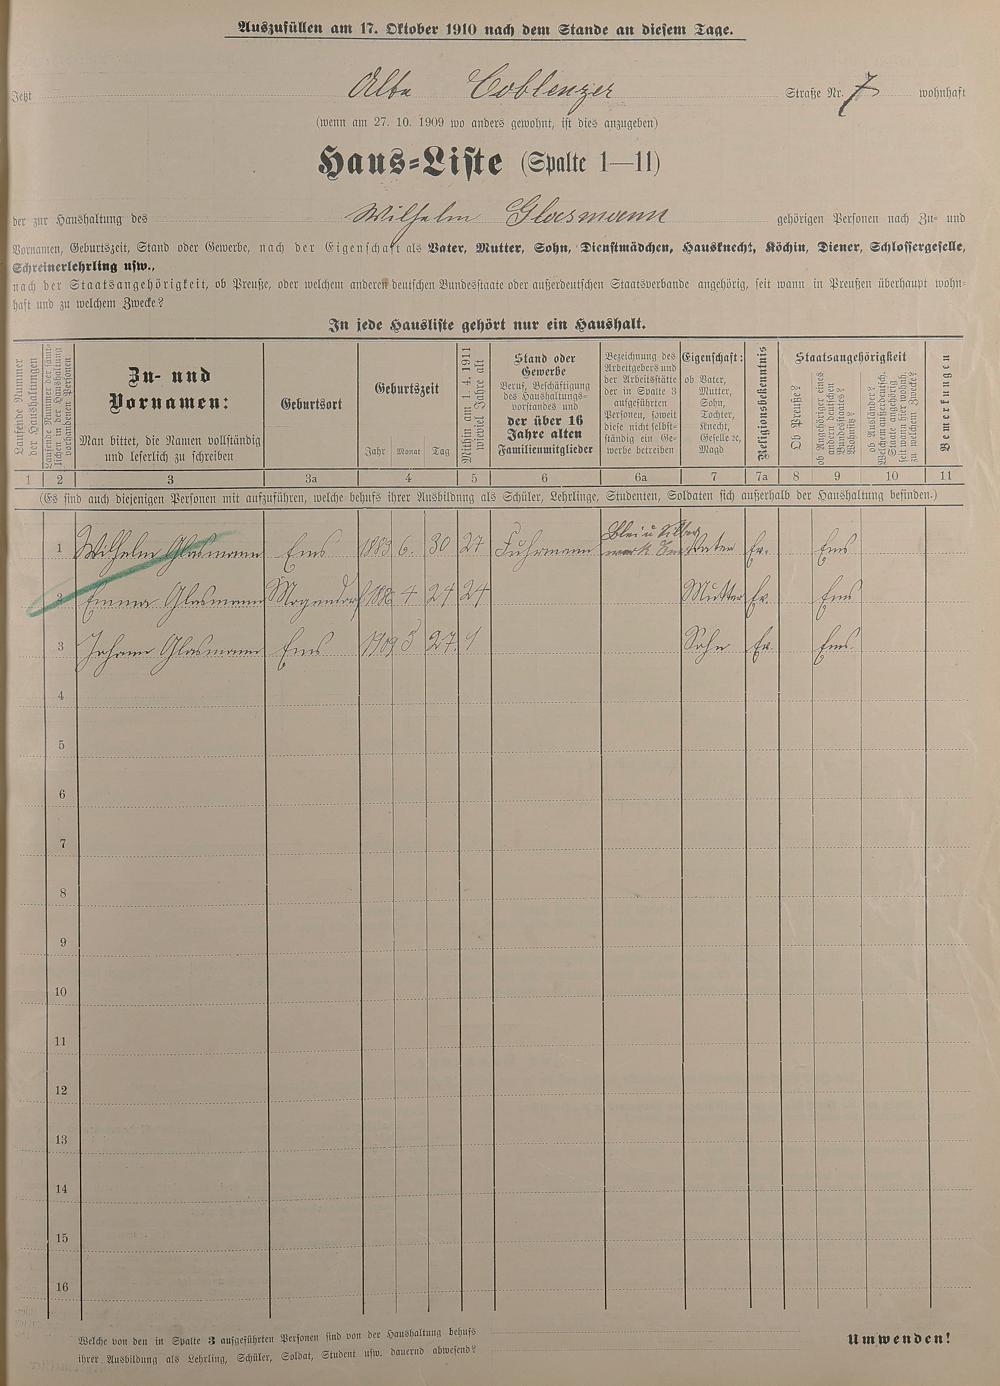 Auszufüllen am 17. Oktober 1910 nach dem Stande an diesem Tage.
Jetzt Alte Coblenzer Straße Nr. 7 wohnhaft
(wenn am 27. 10. 1909 wo anders gewohnt, ist dies anzugeben)
Haus-Liste (Spalte 1—11)
der zur Haushaltung des Wilhelm Glasmann gehörigen Personen nach Zu- und
Vornamen, Geburtszeit, Stand oder Gewerbe, nach der Eigenschaft als Vater, Mutter, Sohn, Dienstmädchen, Hausknecht, Köchin, Diener, Schlossergeselle,
Schreinerlehrling usw.,
nach der Staatsangehörigkeit, ob Preuße, oder welchem anderen deutschen Bundesstaate oder außerdeutschen Staatsverbande angehörig, seit wann in Preußen überhaupt wohn-
haft und zu welchem Zwecke?
In jede Hausliste gehört nur ein Haushalt.
Laufende Nummer
der Haushaltungen
Laufende Nummer der sämt-
lichen in der Haushaltung
vorhandenen Personen
Zu- und
Vornamen:
Man bittet, die Namen vollständig
und leserlich zu schreiben
Geburtsort
Geburtszeit
Jahr Monat Tag
Mithin am 1. 4. 1911
wieviel Jahre alt
Stand oder
Gewerbe
Beruf, Beschäftigung
des Haushaltungs-
vorstandes und
der über 16
Jahre alten
Familienmitglieder
Bezeichnung des
Arbeitgebers und
der Arbeitsstätte
der in Spalte 3
aufgeführten
Personen, soweit
diese nicht selbst-
ständig ein Ge-
werbe betreiben
Eigenschaft:
ob Vater,
Mutter,
Sohn,
Tochter,
Knecht,
Geselle ec,
Magd
Religionsbekenntnis
Staatsangehörigkeit
Ob Preuße?
ob Angehöriger eines
andern deutschen
Bundesstaates?
Wohnsitz?
ob Ausländer?
Welchem außerdeutsch.
Staate angehörig
seit wann hier wohnh.
zu welchem Zwecke?
Bemerkungen
1 2 3 3a 4 5 6 6a 7 7a 8 9 10 11
(Es sind auch diejenigen Personen mit aufzuführen, welche behufs ihrer Ausbildung als Schüler, Lehrlinge, Studenten, Soldaten sich außerhalb der Haushaltung befinden.)
1 Wilhelm Glasmann Ems 1883 6. 30 27 Fuhrmann Blei u Silber werk Ems Vater Ev. Ems
2 Emma Glasmann Mogendorf 4 24 24 Mutter Ev. Ems
3 Johann Glasmann Ems 1909 5 27. 1 Sohn Ev. Ems.
4
5
6
7
8
9
10
11
12
13
14
15
16
Welche von den in Spalte 3 aufgeführten Personen sind von der Haushaltung behufs
ihrer Ausbildung als Lehrling, Schüler, Soldat, Student usw. dauernd abwesend?
Umwenden!